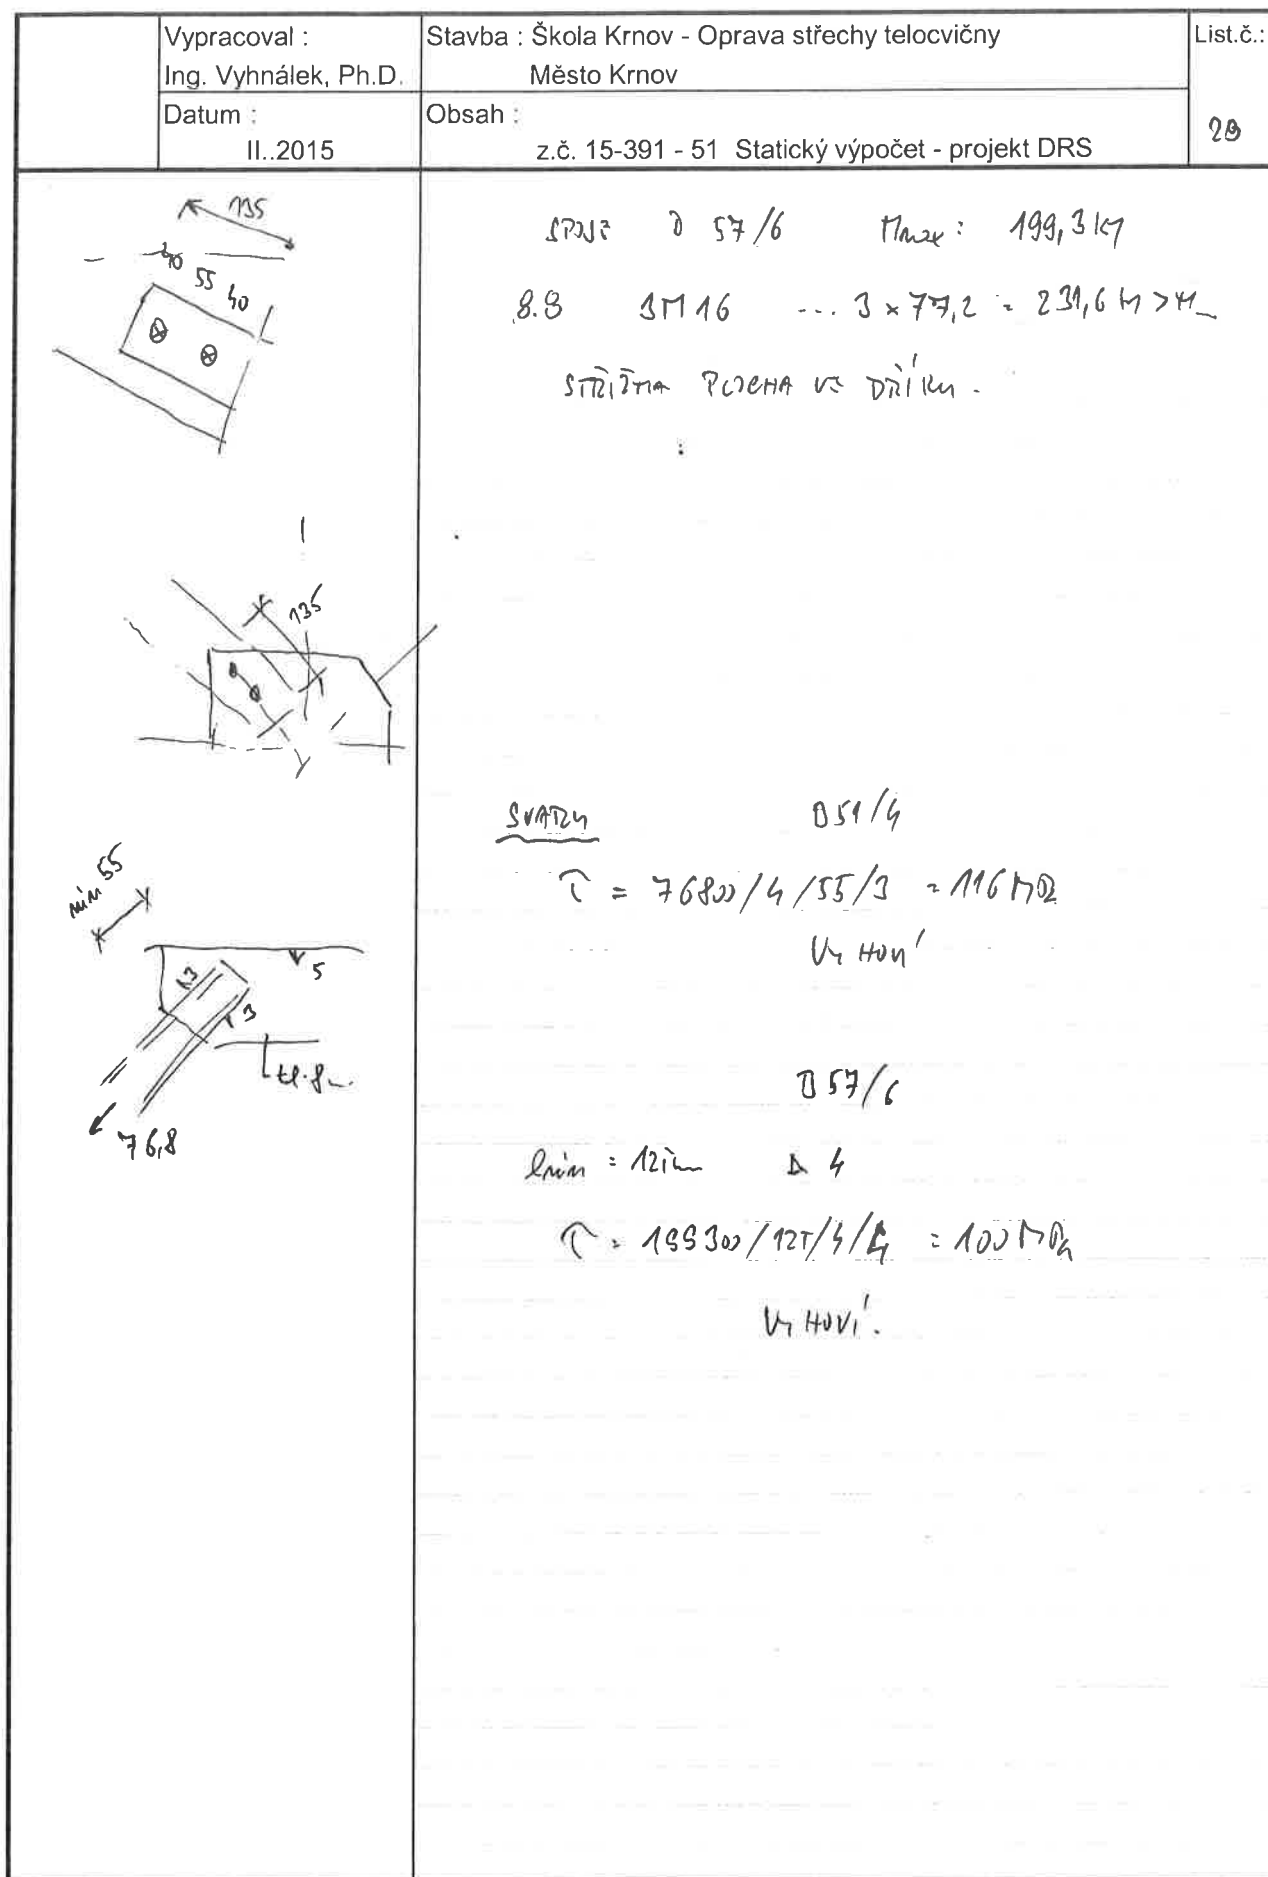 Vypracoval :
Ing. Vyhnálek, Ph.D.
Stavba : Škola Krnov - Oprava střechy telocvičny
Město Krnov
List.č.:
Datum :
II..2015
Obsah :
z.č. 15-391 - 51 Statický výpočet - projekt DRS
135
40 55 40
57/6 max : 199,3 kN
8.8 3M16 ... 3 x 77,2 = 231,6 kN > N
STŘIŽNÁ PLOCHA VE DŘÍKU.
135
SVARY 51/4
τ = 76800/4/55/3 = 116 MPa
VYHOVÍ
min 55
5
3
3
tl. 8
76,8
57/6
lmin = 125mm 4
τ = 199300/125/4/4 = 100 MPa
VYHOVÍ.